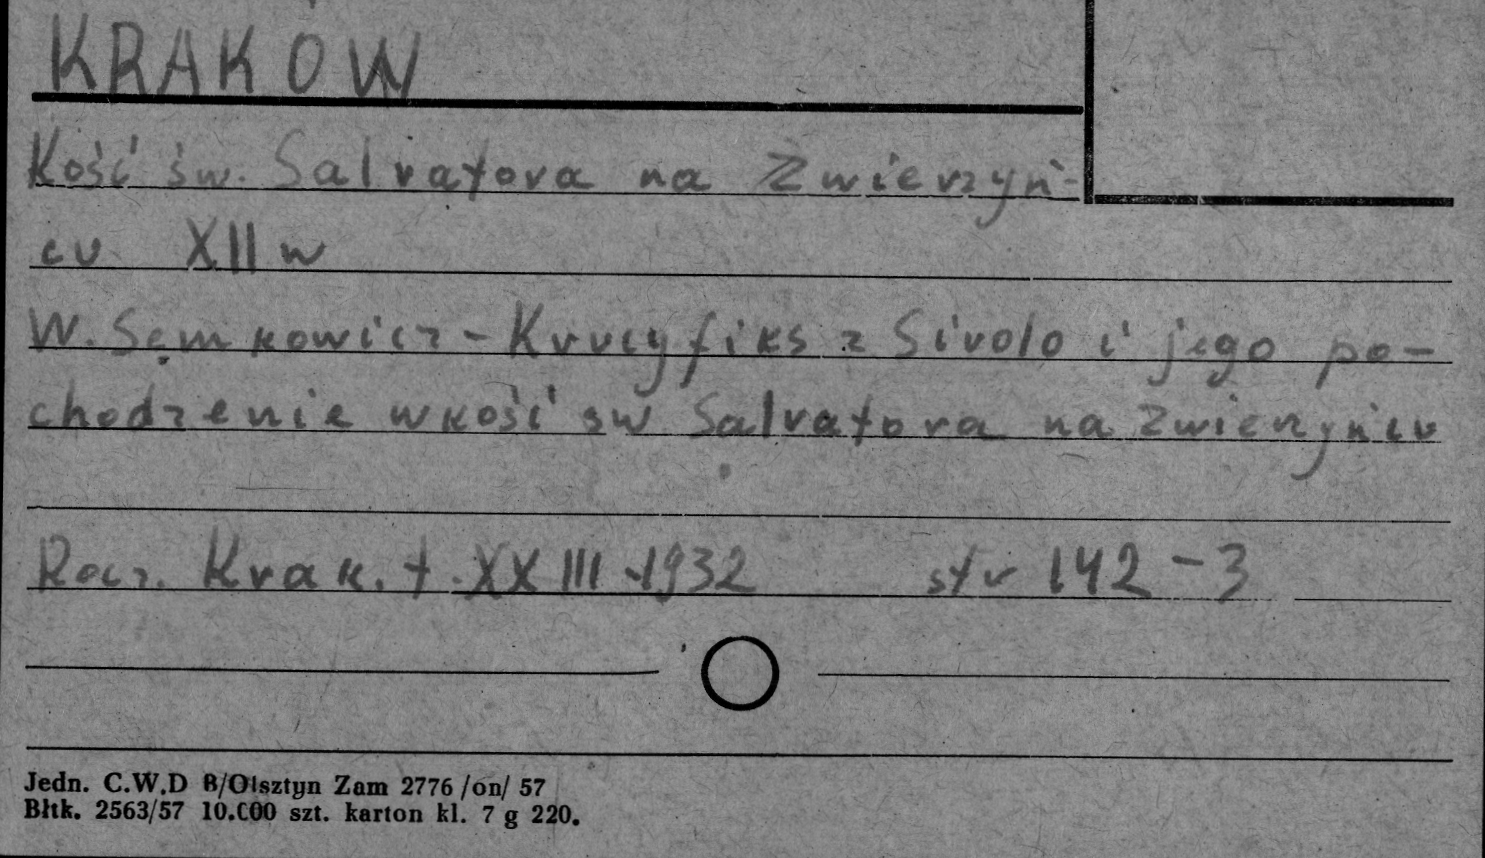 KRAKOW
Kość św. Salvatora na Zwierzyń-
cu XII w
W. Semkowicz - Krucyfiks z Sirolo i jego po-
chodzenie w kość sw Salvatora na Zwierzyńcu
Rocz. Krak. t. XXIII 1932 str 142-3
Jedn. C.W.D B/Olsztyn Zam 2776 /on/ 57
Błtk. 2563/57 10.000 szt. karton kl. 7 g 220.